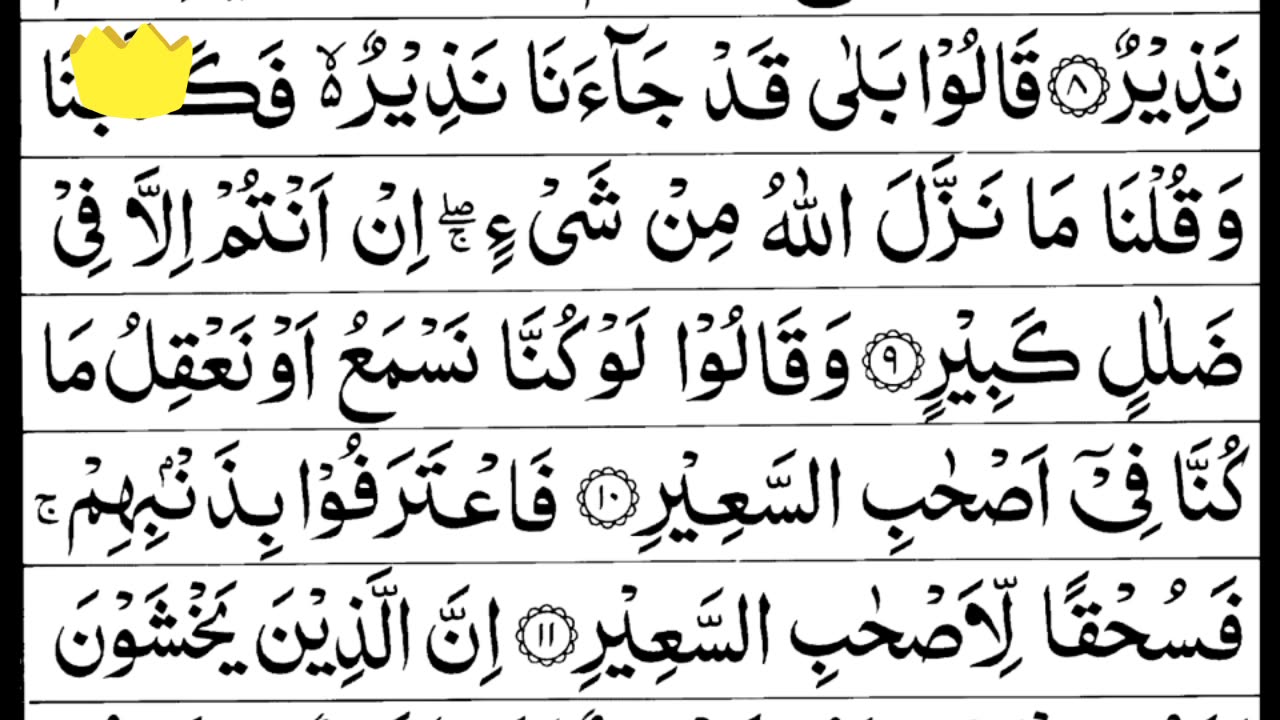 نَذِيْرٌ ۝٨ قَالُوْا بَلٰى قَدْ جَآءَنَا نَذِيْرٌ ۙ۬
وَقُلْنَا مَا نَزَّلَ اللّٰهُ مِنْ شَيْءٍ ۖۚ اِنْ اَنْتُمْ اِلَّا فِيْ
ضَلٰلٍ كَبِيْرٍ ۝٩ وَقَالُوْا لَوْ كُنَّا نَسْمَعُ اَوْ نَعْقِلُ مَا
كُنَّا فِيْٓ اَصْحٰبِ السَّعِيْرِ ۝١٠ فَاعْتَرَفُوْا بِذَنْۢبِهِمْ ۚ
فَسُحْقًا لِّاَصْحٰبِ السَّعِيْرِ ۝١١ اِنَّ الَّذِيْنَ يَخْشَوْنَ